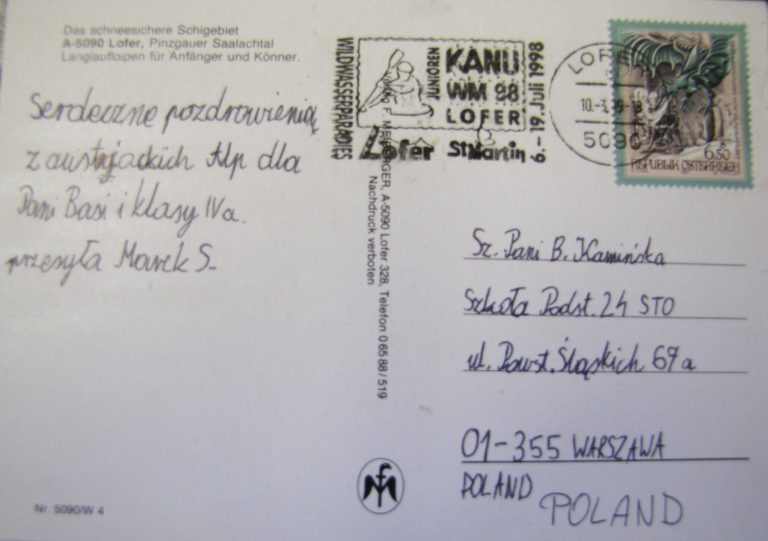 Das schneesichere Schigebiet
A-5090 Lofer, Pinzgauer Saalachtal
Langlaufloipen für Anfänger und Könner.
Serdeczne pozdrowienia
z austrjackich Alp dla
Pani Basi i klasy IVa.
przesyła Marek S.
Nr. 5090/W 4
WILDWASSERPARADIES
JUNIOREN
KANU
WM 98
LOFER
Lofer St Martin
6.-19. Juli 1998
LOFER
5090
6.50
REPUBLIK ÖSTERREICH
A-5090 Lofer 328, Telefon 0 65 88 / 519
Nachdruck verboten
Sz. Pani B. Kamińska
Szkoła Podst. 24 STO
ul. Powst. Śląskich 67a
01-355 WARSZAWA
POLAND
POLAND